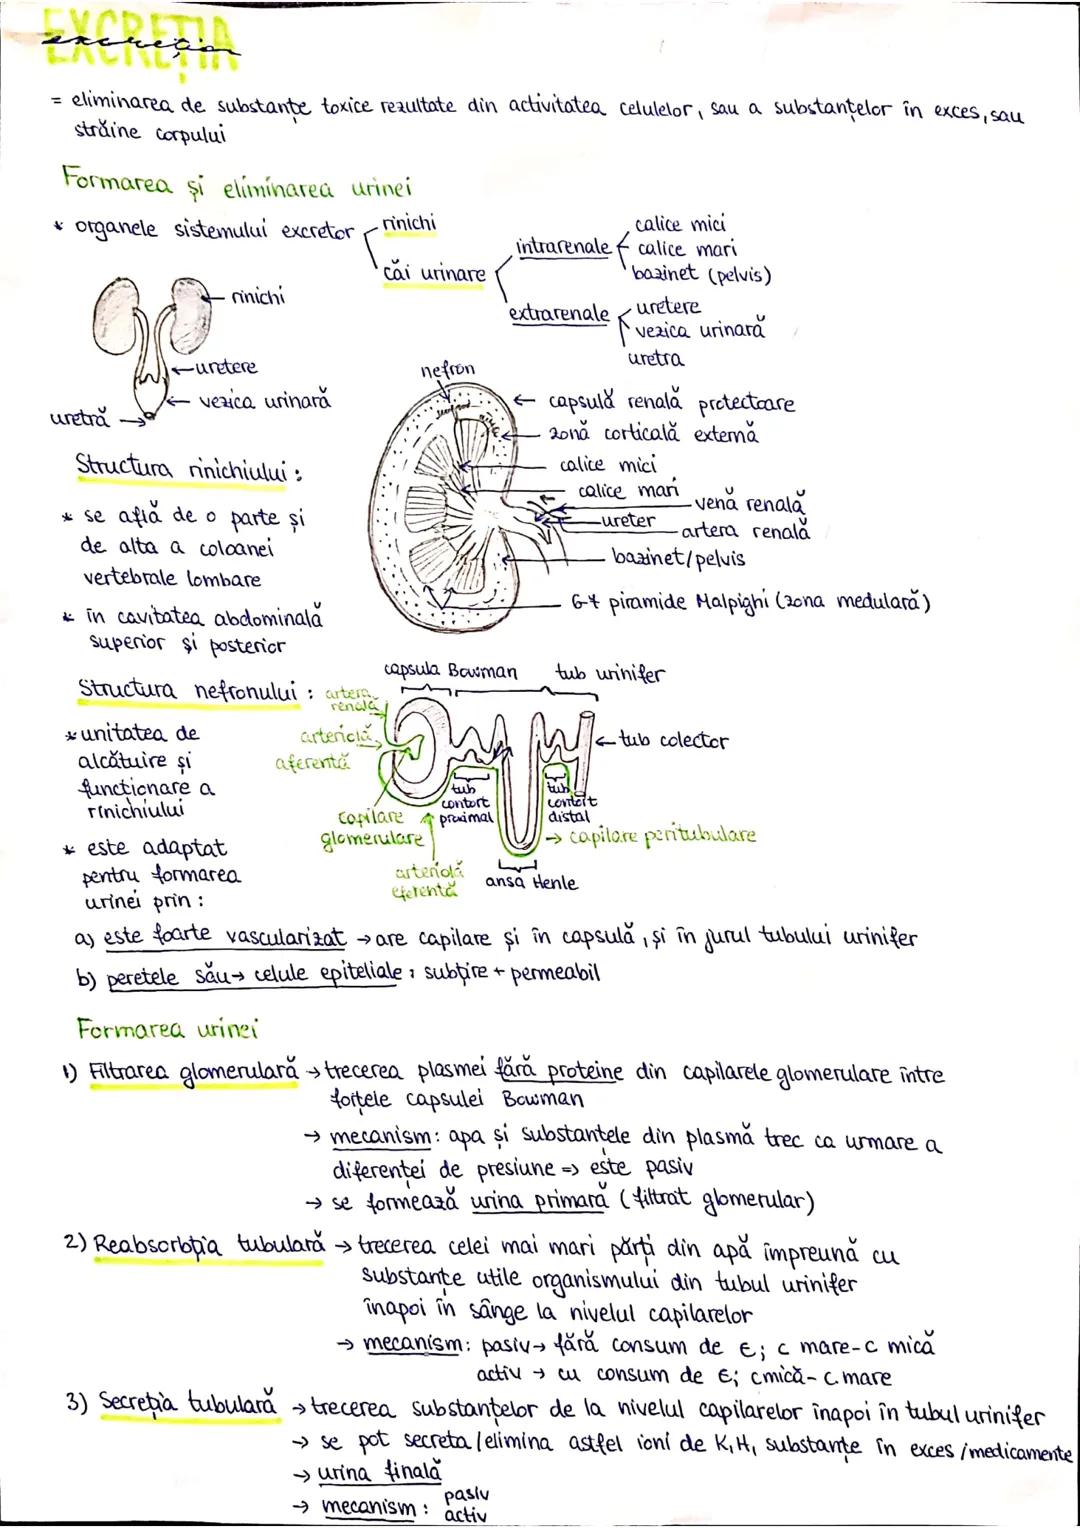 EXCREȚIA
excreția
= eliminarea de substanțe toxice rezultate din activitatea celulelor, sau a substanțelor în exces, sau
străine corpului
Formarea și eliminarea urinei
* organele sistemului excretor
rinichi
căi urinare
intrarenale
calice mici
calice mari
bazinet (pelvis)
extrarenale
uretere
vezica urinară
uretra
rinichi
uretere
vezica urinară
uretră
nefron
capsulă renală protectoare
zonă corticală externă
calice mici
calice mari
venă renală
ureter
artera renală
bazinet/pelvis
6-7 piramide Malpighi (zona medulară)
Structura rinichiului:
* se află de o parte și
de alta a coloanei
vertebrale lombare
* în cavitatea abdominală
superior și posterior
Structura nefronului:
capsula Bowman
tub urinifer
artera
renală
arteriolă
aferentă
tub colector
tub
contort
proximal
tub
contort
distal
capilare
glomerulare
→ capilare peritubulare
arteriolă
eferentă
ansa Henle
* unitatea de
alcătuire și
funcționare a
rinichiului
* este adaptat
pentru formarea
urinei prin:
a) este foarte vascularizat → are capilare și în capsulă, și în jurul tubului urinifer
b) peretele său → celule epiteliale: subțire + permeabil
Formarea urinei
1) Filtrarea glomerulară → trecerea plasmei fără proteine din capilarele glomerulare între
foițele capsulei Bowman
→ mecanism: apa și substanțele din plasmă trec ca urmare a
diferenței de presiune => este pasiv
→ se formează urina primară (filtrat glomerular)
2) Reabsorbția tubulară → trecerea celei mai mari părți din apă împreună cu
substanțe utile organismului din tubul urinifer
înapoi în sânge la nivelul capilarelor
→ mecanism: pasiv → fără consum de E; c mare - c mică
activ → cu consum de E; c mică - c mare
3) Secreția tubulară → trecerea substanțelor de la nivelul capilarelor înapoi în tubul urinifer
→ se pot secreta/elimina astfel ioni de K, H, substanțe în exces/medicamente
→ urina finală
→ mecanism: pasiv
activ